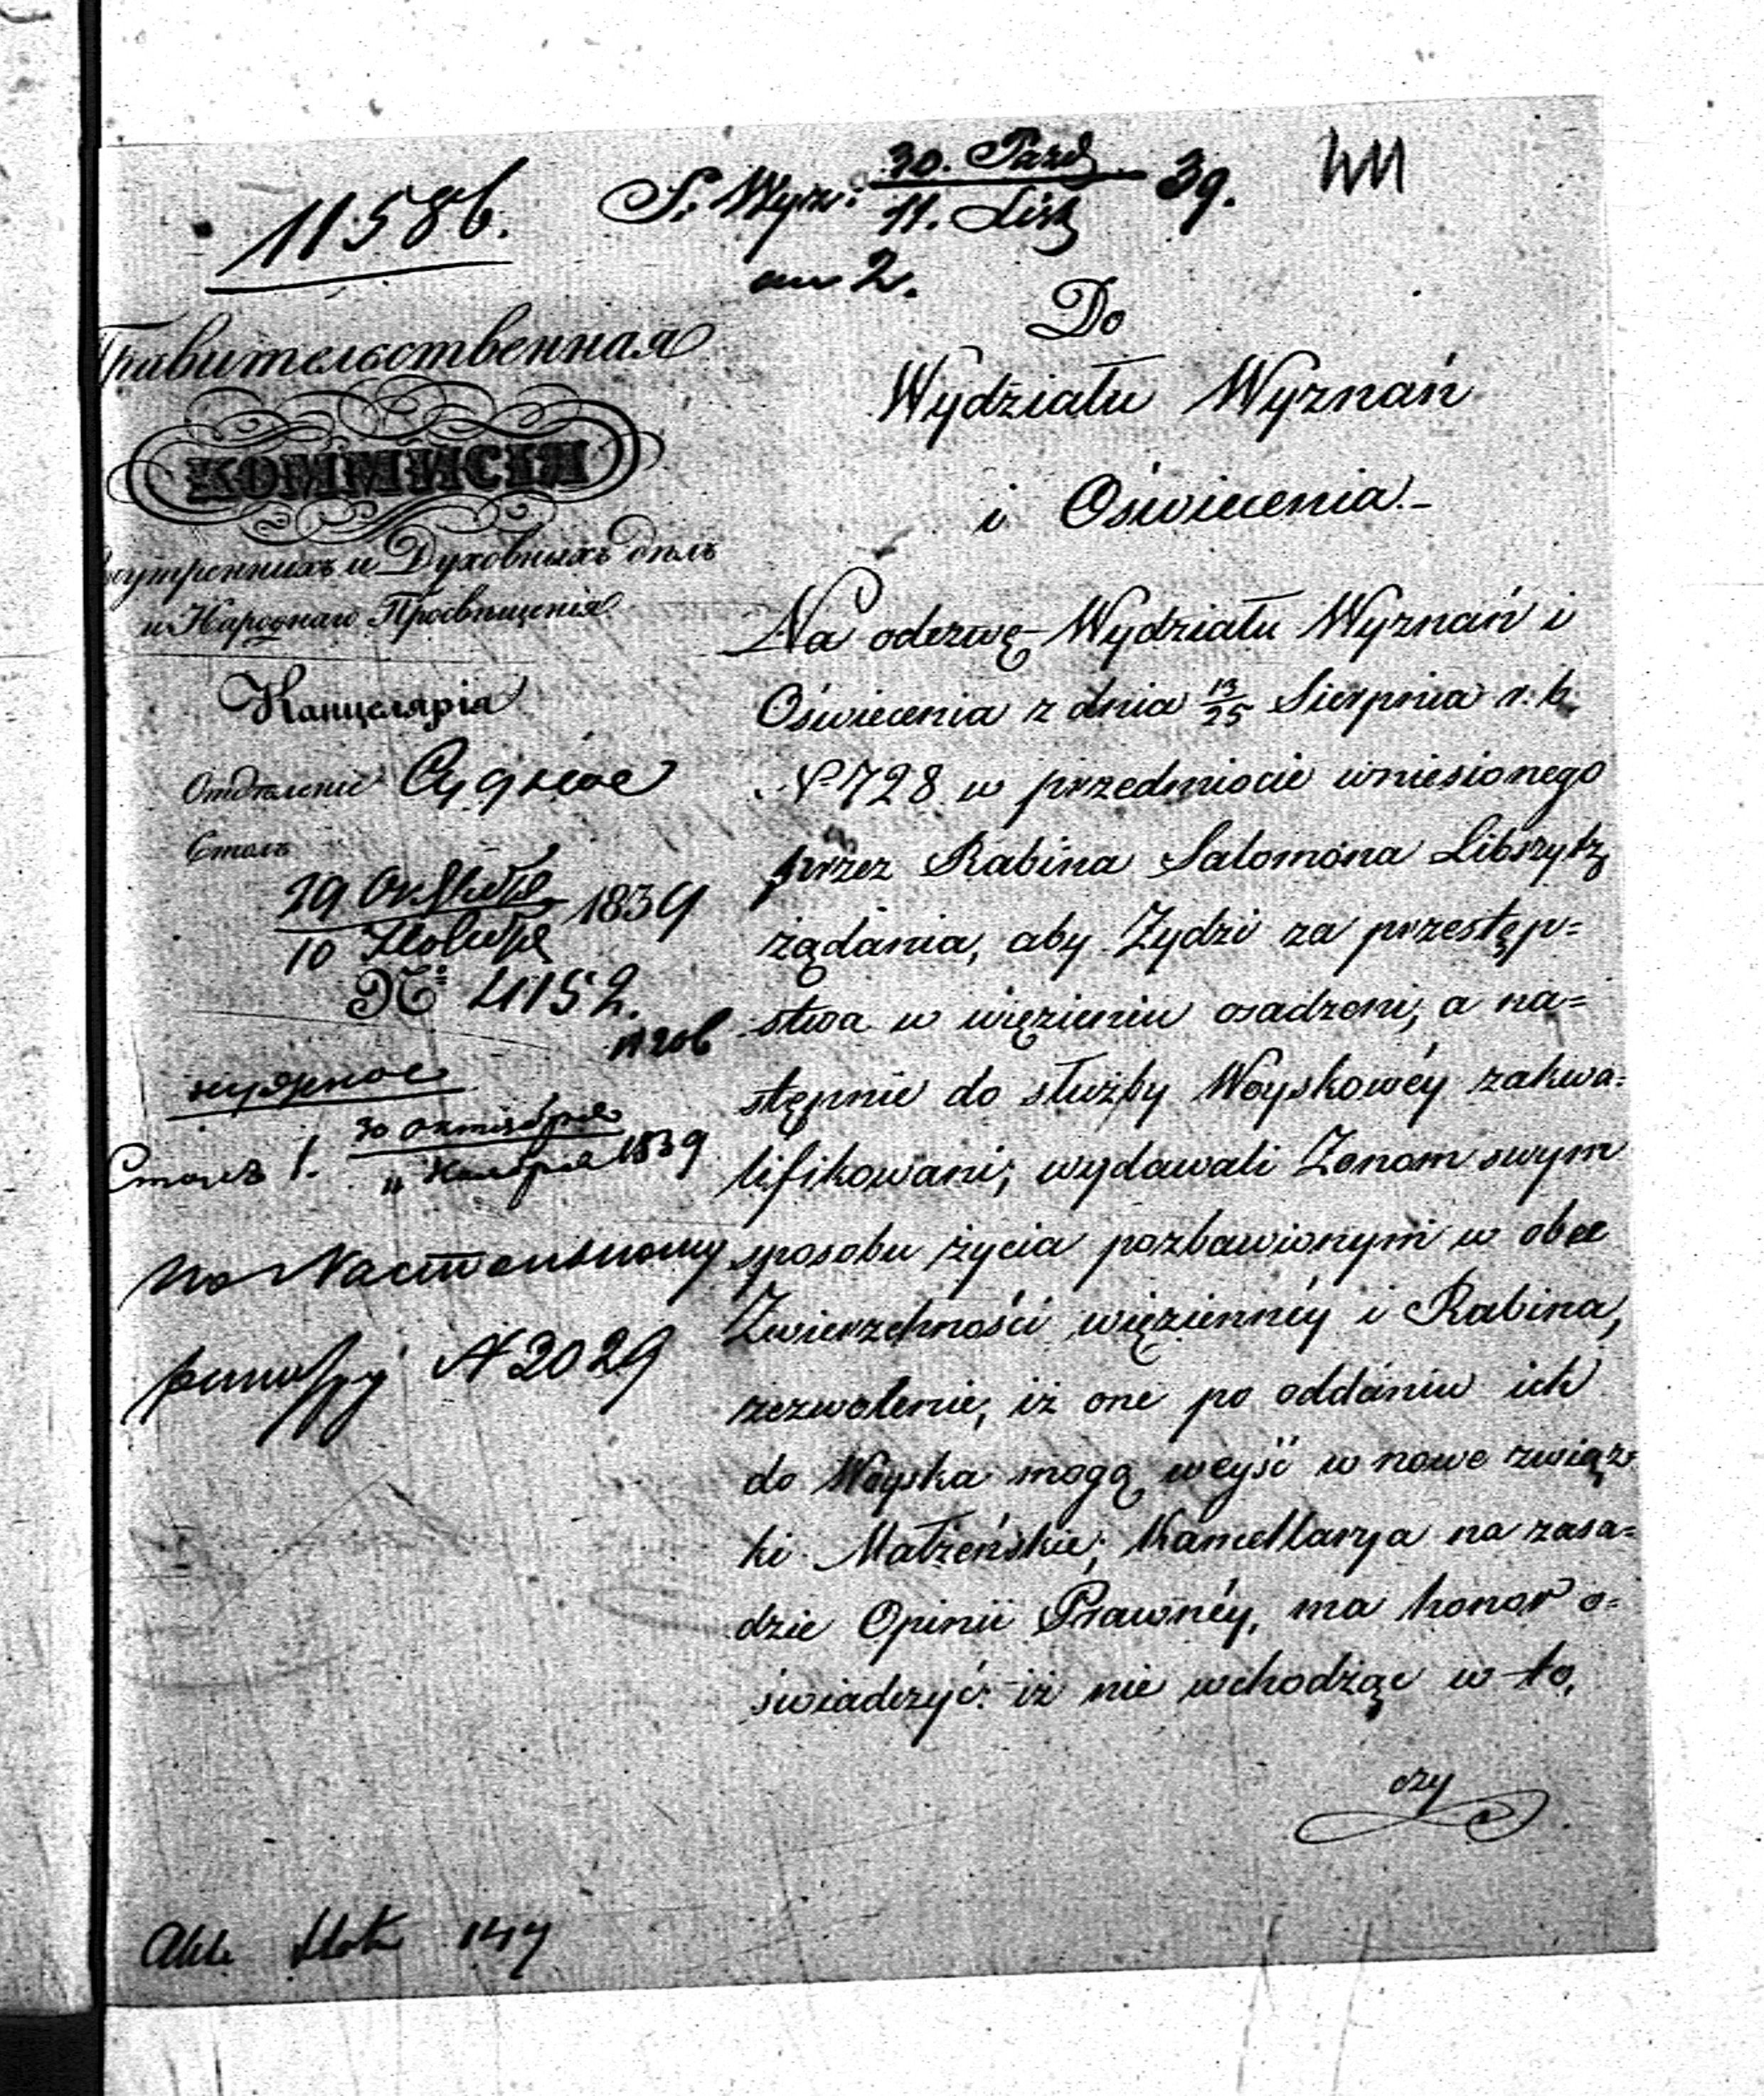 11586.
S. Wyzn. 30. Pazd 39.
11. List
an 2.
Правительственная
КОММИСІЯ
Внутреннихъ и Духовныхъ дѣлъ
и Народнаго Просвѣщенія
Канцелярія
Отдѣленіе Судное
Столъ
29 Октября 1839
10 Ноября
№ 4152.
нужное
Столъ 1. 30 октября 1839
11 Ноября
по Настольному
N 2029
Akta 149
Do
Wydziału Wyznań
i Oświecenia.-
Na odezwę Wydziału Wyznań i
Oświecenia z dnia 13/25 Sierpnia r. b.
N 728 w przedmiocie wniesionego
przez Rabina Salomona Libszytz
żądania, aby Żydzi za przestęp=
stwa w więzieniu osadzeni, a na=
stępnie do służby Woyskowéy zakwa=
lifikowani, wydawali Żonom swym
sposobu życia pozbawionym w obec
Zwierzchności więziennéy i Rabina,
zezwolenie, iż one po oddaniu ich
do Woyska mogą weyść w nowe związ=
ki Małżeńskie; Kancellarya na zasa=
dzie Opinii Prawnéy, ma honor o=
świadczyć: iż nie wchodząc w to,
czy